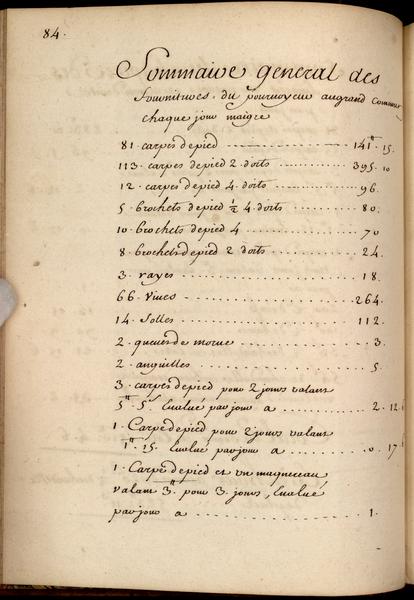 84.
Sommaire general des
fournitures du pourvoyeur au grand commun
chaque jour maigre
81 carpes de pied - - - 141ᵗᵗ. 15.
113. carpes de pied 2 doits - - - 395. 10
12. carpes de pied 4 doits - - - 96.
5 brochets de pied ½ 4 doits - - - 80.
10. brochets de pied 4 - - - 70
8 brochets de pied 2 doits - - - 24.
3. rayes - - - 18.
66. Viues - - - 264.
14. Solles - - - 112.
2. queues de morue - - - 3.
2. anguilles - - - 5.
3. carpes de pied pour 2 jours valant
5ᵗᵗ 5ˢ Eualué par jour a - - - 2. 12.
1. Carpe de pied pour 2 jours valant
1ᵗᵗ 15. Eualué par jour a - - - 0. 17
1. Carpe de pied et un maquereau
valant 3ᵗᵗ pour 3 jours, Eualué
par jour a - - - 1.